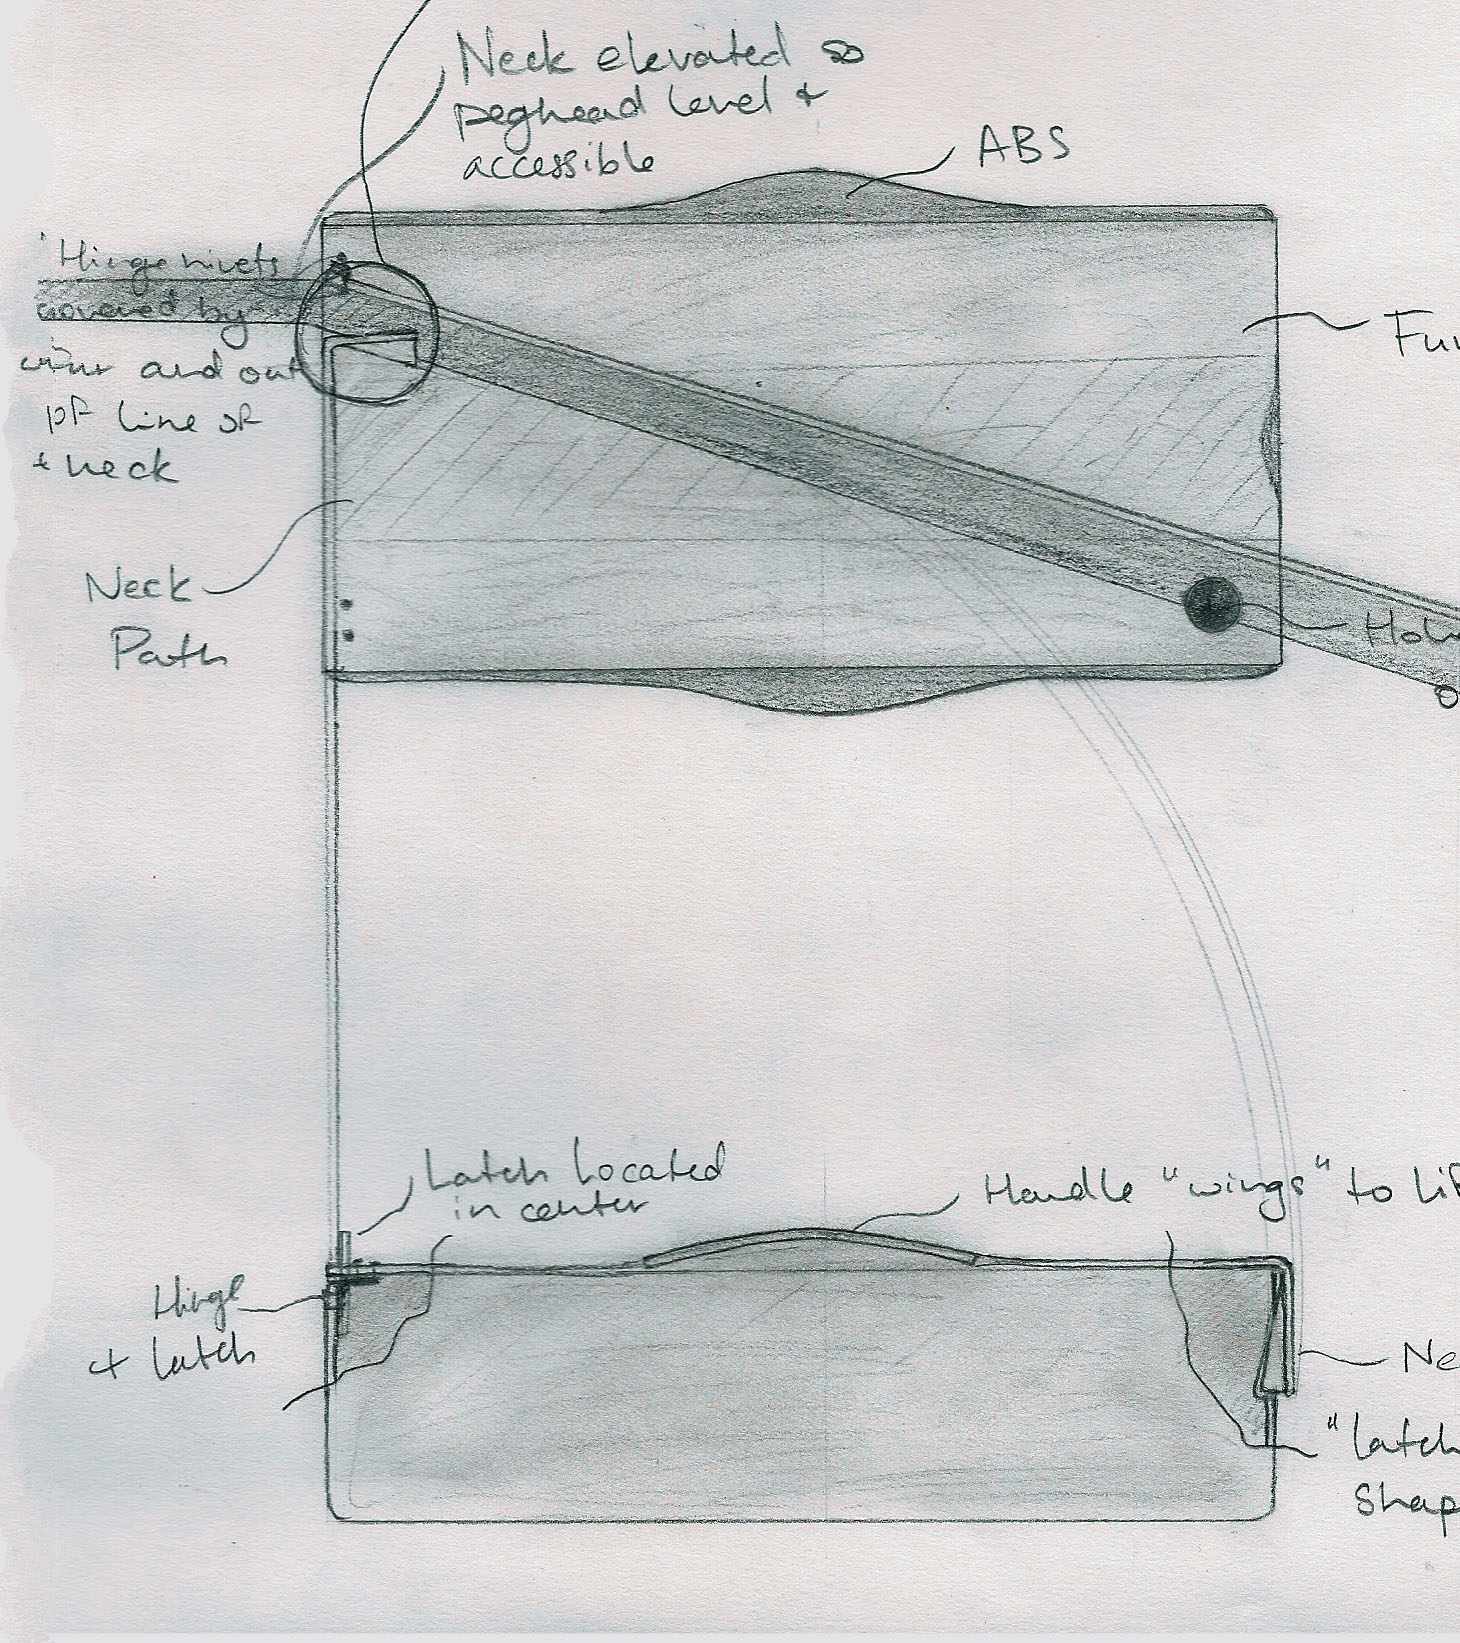 Neck elevated so
peghead level +
accessible
ABS
Hinge rivets
covered by
and out
of line of
+ neck
Fur
Neck
Path
Hol
o
Latch Located
in center
Handle "wings" to lif
Hinge
+ latch
Ne
"latch
Shap